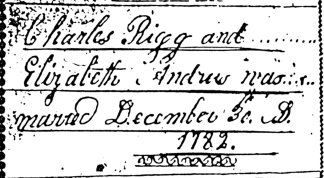 Charles Rigg and
Elizabeth Andrus was
maried December 30. D.
1782.